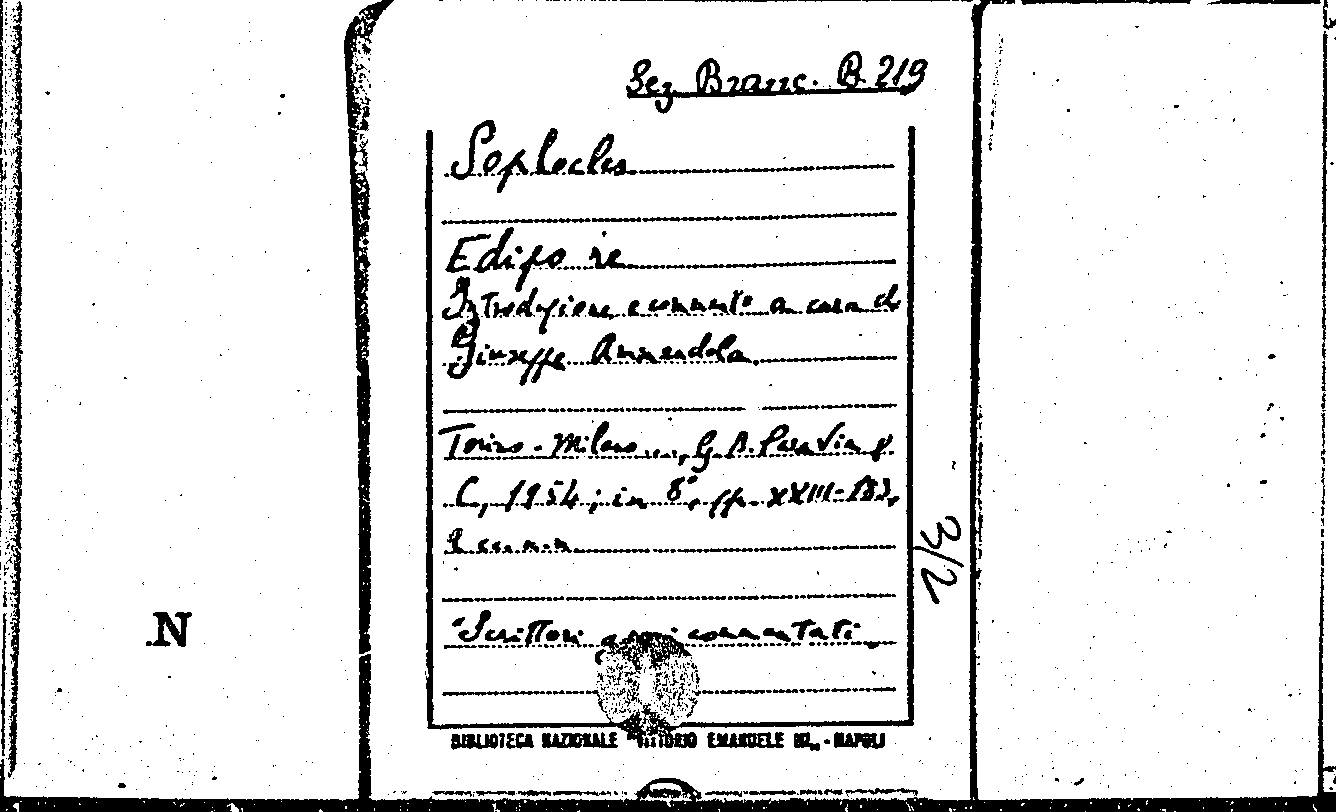 Sez Branc. B. 219
Sophocles
Edipo re
Introduzione e commento a cura di
Giuseppe Ammendola.
Torino - Milano ..., G. B. Paravia &
C., 1954; in 8°, pp. XXIII-183,
2 cc. n.n.
"Scrittori greci commentati
BIBLIOTECA NAZIONALE "VITTORIO EMANUELE III„ - NAPOLI
3/2
N